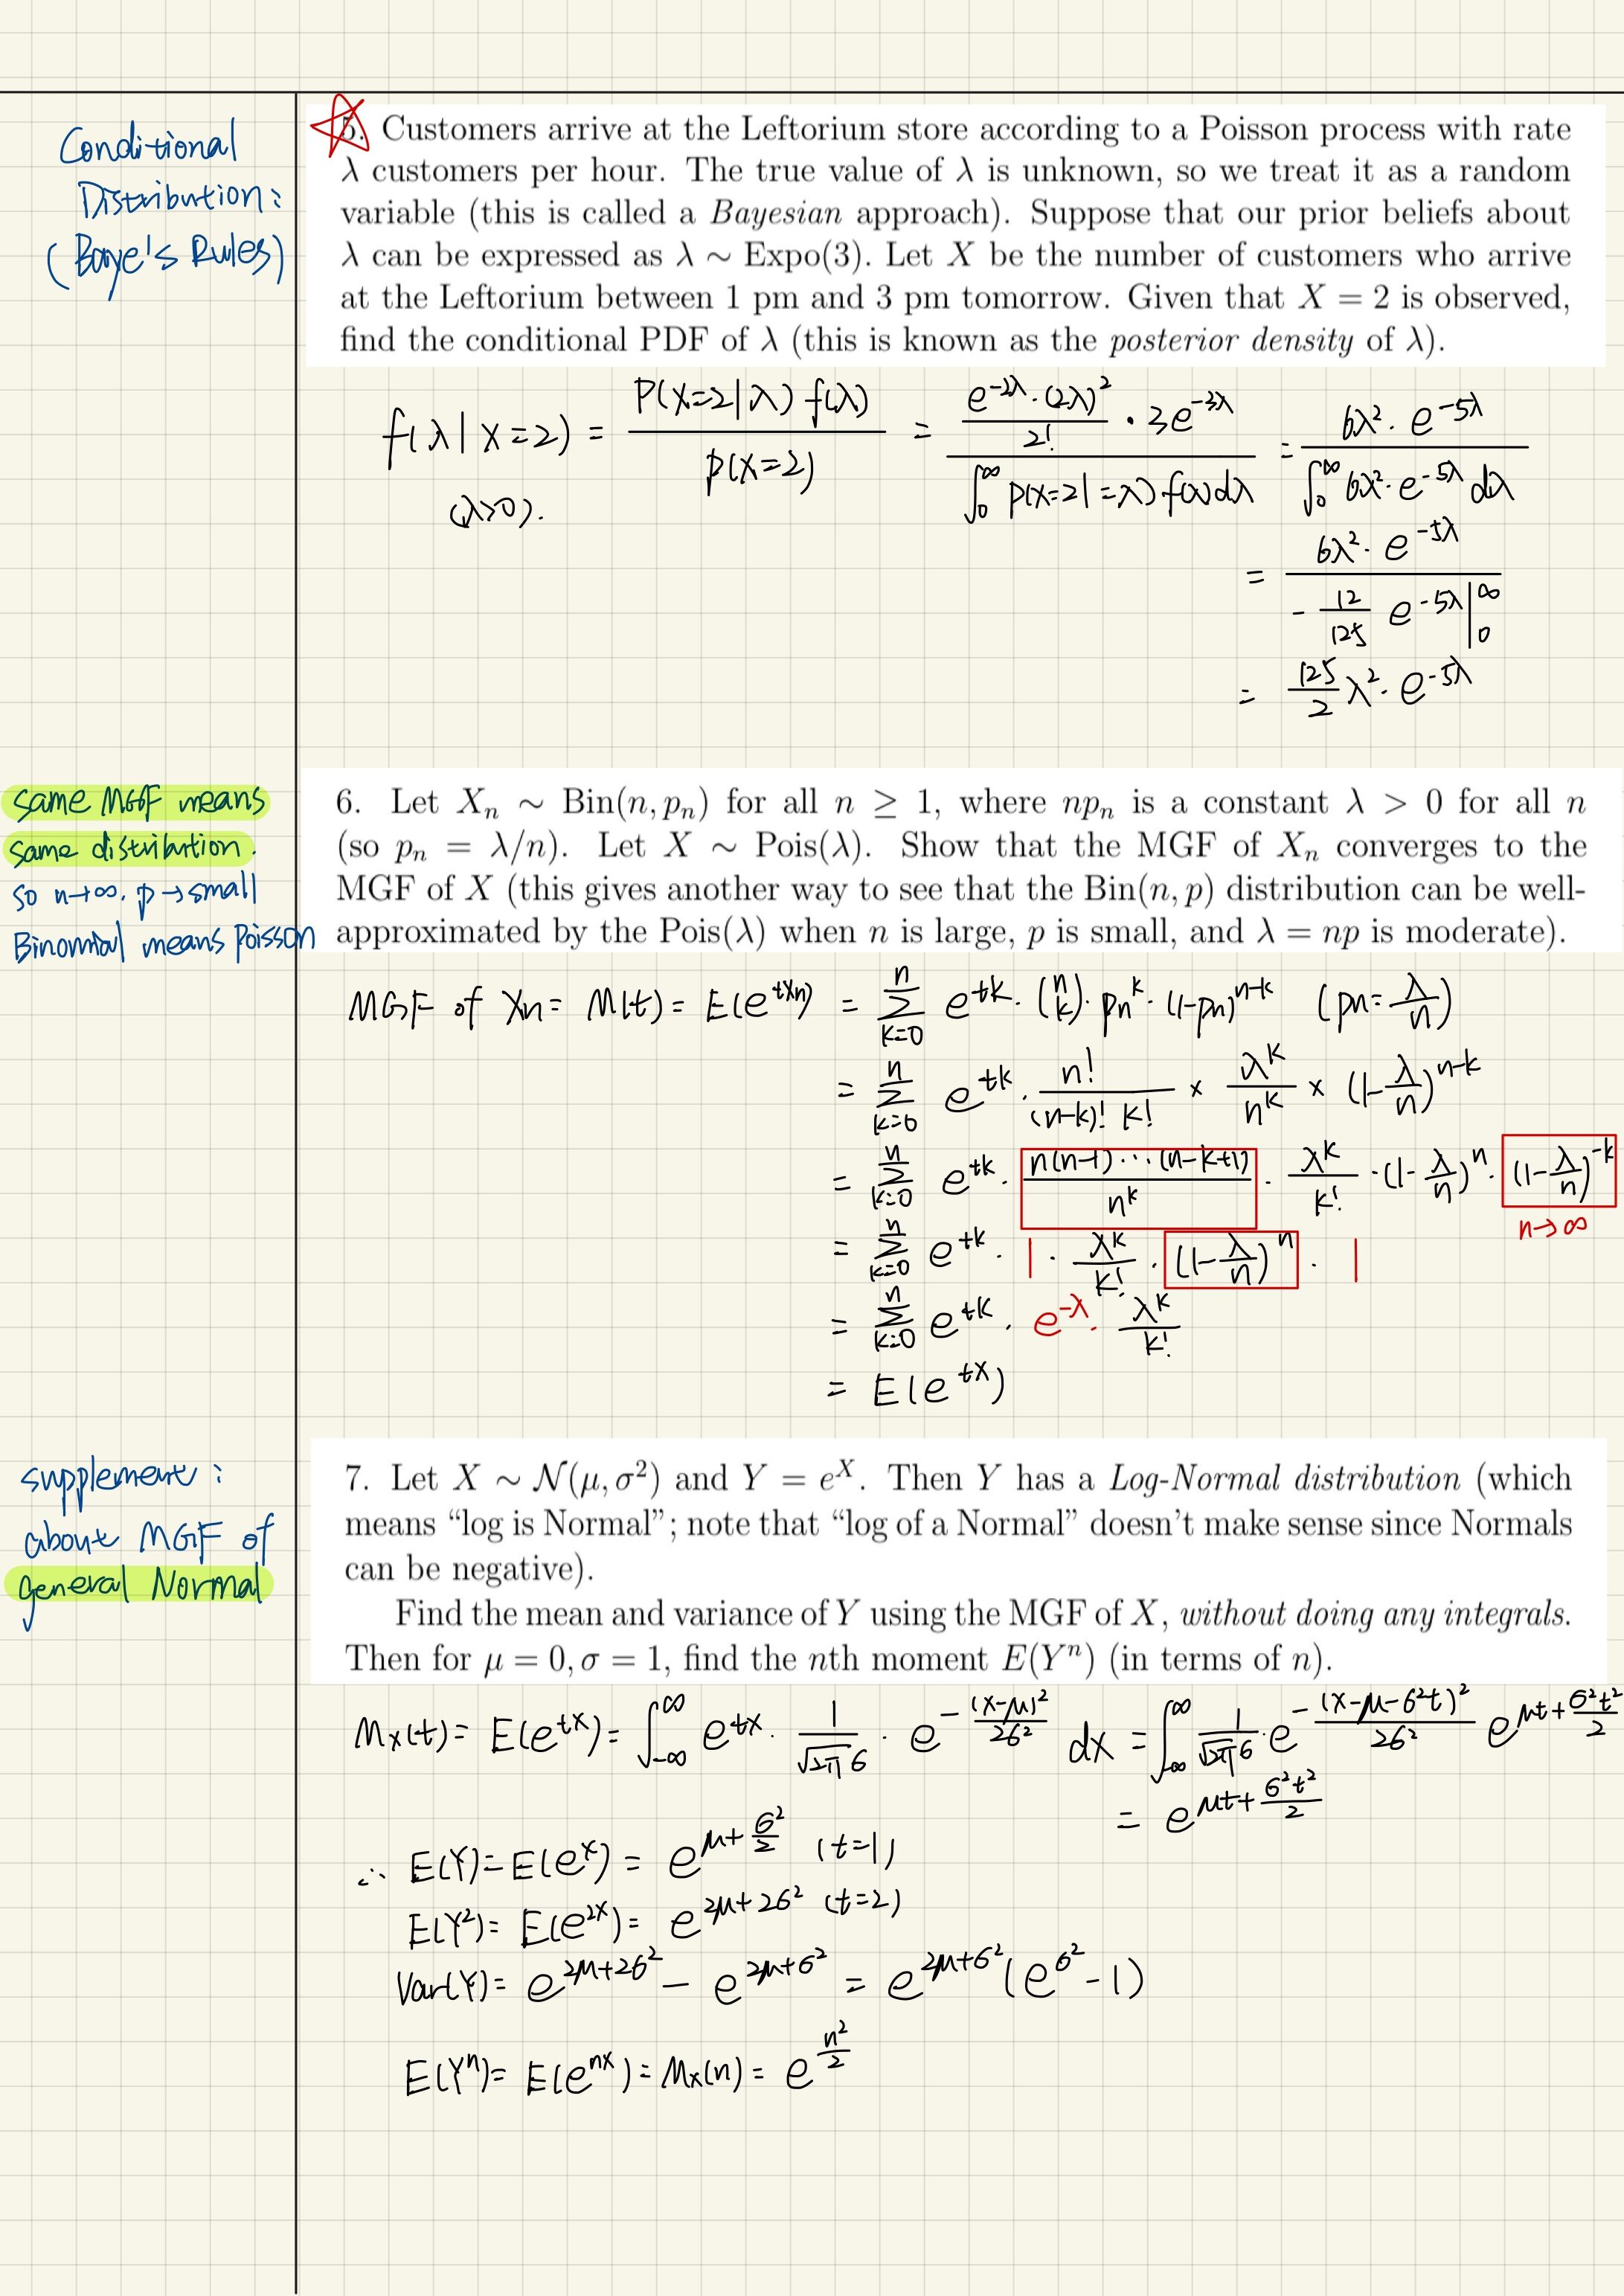 Conditional
Distribution:
(Baye's Rules)
5. Customers arrive at the Leftorium store according to a Poisson process with rate
λ customers per hour. The true value of λ is unknown, so we treat it as a random
variable (this is called a Bayesian approach). Suppose that our prior beliefs about
λ can be expressed as λ ∼ Expo(3). Let X be the number of customers who arrive
at the Leftorium between 1 pm and 3 pm tomorrow. Given that X = 2 is observed,
find the conditional PDF of λ (this is known as the posterior density of λ).
f(λ|X=2) = P(X=2|λ) f(λ) / P(X=2) = (e^{-2λ}·(2λ)^2 / 2! · 3e^{-3λ}) / (∫_0^∞ P(X=2|=λ)·f(λ)dλ) = 6λ^2·e^{-5λ} / ∫_0^∞ 6λ^2·e^{-5λ} dλ
(λ>0).
= 6λ^2·e^{-5λ} / (-12/125 e^{-5λ}|_0^∞)
= 125/2 λ^2·e^{-5λ}
same MGF means
same distribution.
so n→∞, p→small
Binomial means Poisson
6. Let X_n ∼ Bin(n, p_n) for all n ≥ 1, where np_n is a constant λ > 0 for all n
(so p_n = λ/n). Let X ∼ Pois(λ). Show that the MGF of X_n converges to the
MGF of X (this gives another way to see that the Bin(n, p) distribution can be well-
approximated by the Pois(λ) when n is large, p is small, and λ = np is moderate).
MGF of Xn = M(t) = E(e^{tXn}) = ∑_{k=0}^n e^{tk}·(n k)·pn^k·(1-pn)^{n-k} (pn=λ/n)
= ∑_{k=0}^n e^{tk}·n!/((n-k)! k!) × λ^k/n^k × (1-λ/n)^{n-k}
= ∑_{k=0}^n e^{tk}·n(n-1)···(n-k+1)/n^k · λ^k/k! ·(1-λ/n)^n·(1-λ/n)^{-k}
n→∞
= ∑_{k=0}^n e^{tk}·1·λ^k/k!·(1-λ/n)^n·1
= ∑_{k=0}^n e^{tk}·e^{-λ}·λ^k/k!
= E(e^{tX})
supplement:
about MGF of
general Normal
7. Let X ∼ N(μ, σ²) and Y = e^X. Then Y has a Log-Normal distribution (which
means “log is Normal”; note that “log of a Normal” doesn’t make sense since Normals
can be negative).
Find the mean and variance of Y using the MGF of X, without doing any integrals.
Then for μ = 0, σ = 1, find the nth moment E(Y^n) (in terms of n).
Mx(t) = E(e^{tX}) = ∫_{-∞}^∞ e^{tx}·1/(√2π σ)·e^{-(x-μ)²/2σ²} dx = ∫_{-∞}^∞ 1/(√2π σ)·e^{-(x-μ-σ²t)²/2σ²} e^{μt+σ²t²/2}
= e^{μt+σ²t²/2}
∴ E(Y) = E(e^X) = e^{μ+σ²/2} (t=1)
E(Y²) = E(e^{2X}) = e^{2μ+2σ²} (t=2)
Var(Y) = e^{2μ+2σ²} - e^{2μ+σ²} = e^{2μ+σ²}(e^{σ²}-1)
E(Y^n) = E(e^{nX}) = Mx(n) = e^{n²/2}